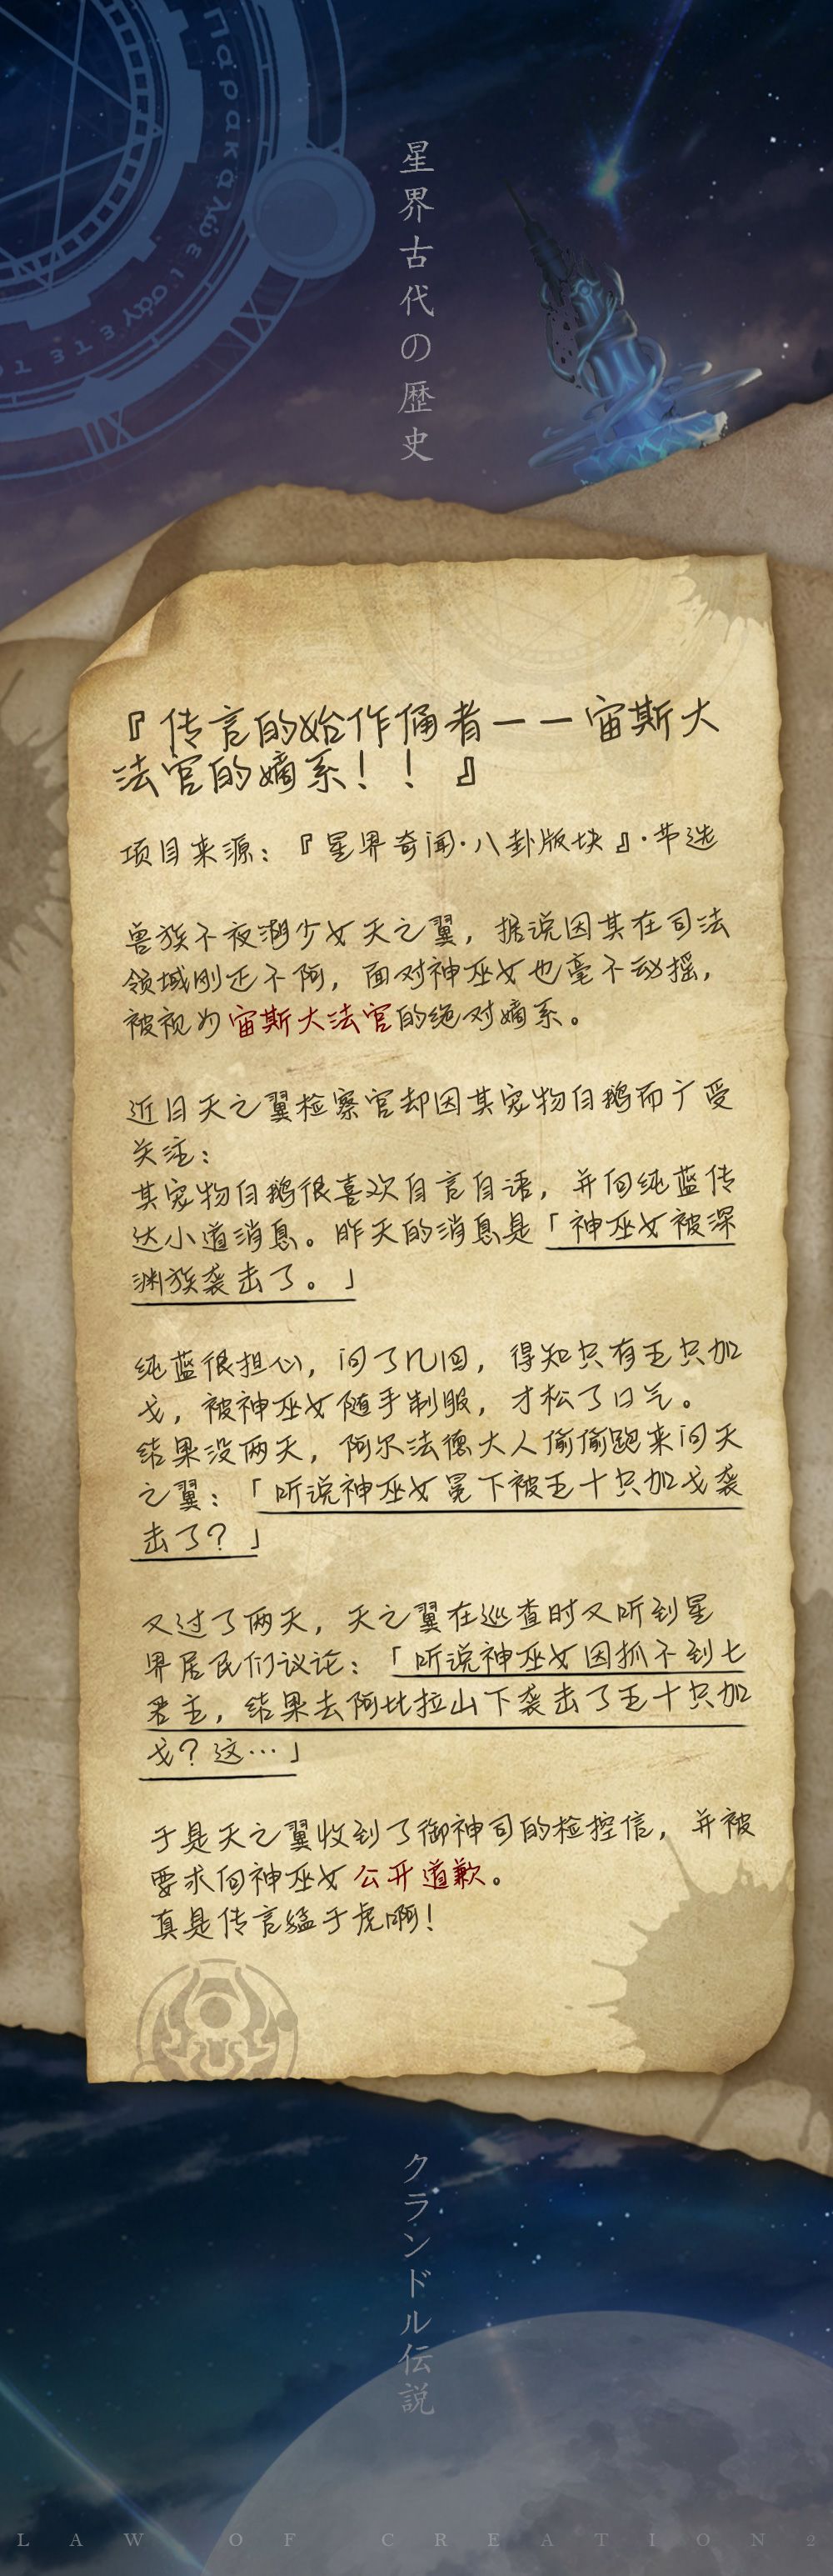 Παρακαλώ ε
星界古代の歴史
『传言的始作俑者——宙斯大
法官的嫡系！！』
项目来源：『星界奇闻·八卦版块』·节选
兽族不夜潮少女天之翼，据说因其在司法
领域刚正不阿，面对神巫女也毫不动摇，
被视为宙斯大法官的绝对嫡系。
近日天之翼检察官却因其宠物白鹅而广受
关注：
其宠物白鹅很喜欢自言自语，并向纯蓝传
达小道消息。昨天的消息是「神巫女被深
渊族袭击了。」
纯蓝很担心，问了几回，得知只有五只加
戈，被神巫女随手制服，才松了口气。
结果没两天，阿尔法德大人偷偷跑来问天
之翼：「听说神巫女冕下被五十只加戈袭
击了？」
又过了两天，天之翼在巡查时又听到星
界居民们议论：「听说神巫女因抓不到七
君主，结果去阿比拉山下袭击了五十只加
戈？这…」
于是天之翼收到了御神司的检控信，并被
要求向神巫女公开道歉。
真是传言猛于虎啊！
クランドル伝説
LAW OF CREATION2